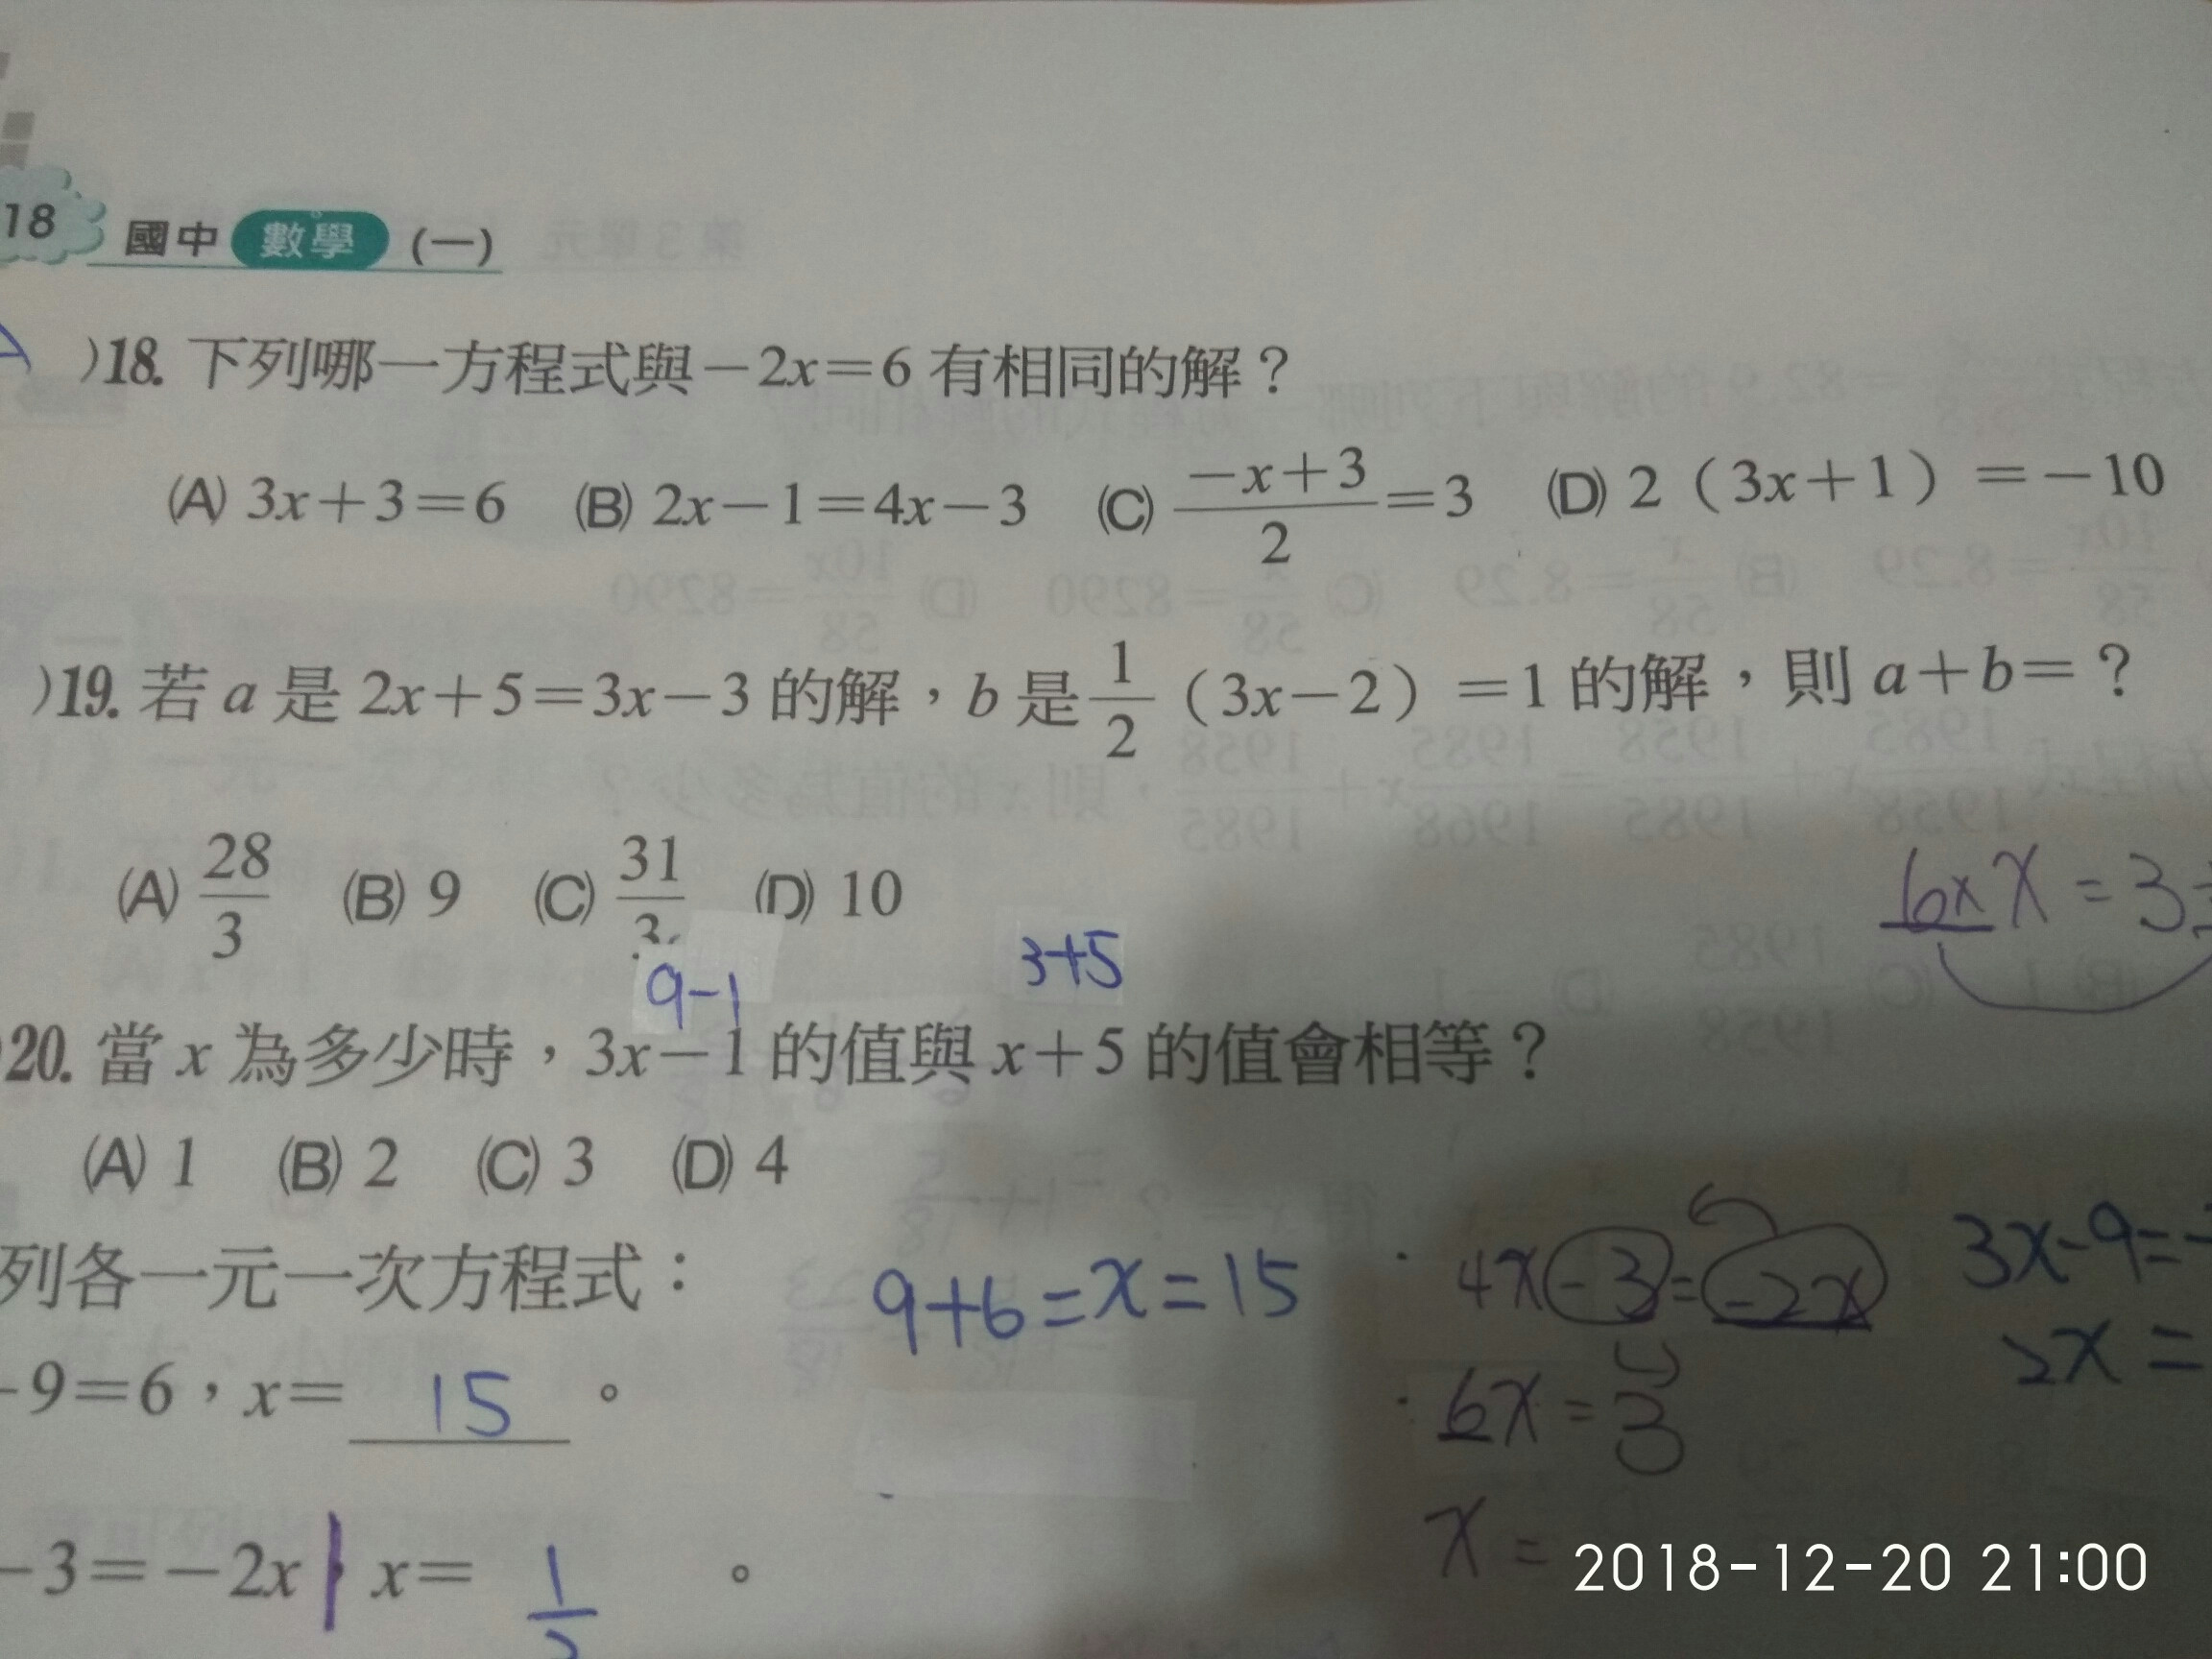 18 國中 數學 (一)
)18. 下列哪一方程式與－2x＝6 有相同的解？
(A) 3x＋3＝6 (B) 2x－1＝4x－3 (C) \frac{-x+3}{2}＝3 (D) 2（3x＋1）＝－10
)19. 若 a 是 2x＋5＝3x－3 的解，b 是 \frac{1}{2}（3x－2）＝1 的解，則 a＋b＝？
(A) \frac{28}{3} (B) 9 (C) \frac{31}{3} (D) 10
6x x = 3
9-1 3+5
20. 當 x 為多少時，3x－1 的值與 x＋5 的值會相等？
(A) 1 (B) 2 (C) 3 (D) 4
列各一元一次方程式：
9+6=x=15
4x-3=-2x
3x-9=
－9＝6，x＝ 15 。
6x=3
2x=
－3＝－2x x＝ \frac{1}{2} 。
x=
2018-12-20 21:00